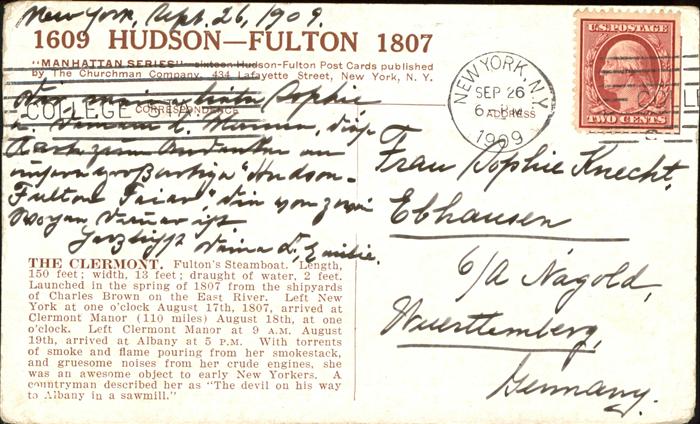 New York, Sept. 26, 1909.
1609 HUDSON—FULTON 1807
"MANHATTAN SERIES" sixteen Hudson-Fulton Post Cards published
by The Churchman Company, 434 Lafayette Street, New York, N. Y.
Sophie
COLLEGE STA.
CORRESPONDENCE
Karte zum Andenken an
unsere großartige "Hudson-
Fulton Feier," die von zwei
Wochen Dauer ist
Herzlichst Deine L. Emilie.
THE CLERMONT. Fulton's Steamboat. Length,
150 feet; width, 13 feet; draught of water, 2 feet.
Launched in the spring of 1807 from the shipyards
of Charles Brown on the East River. Left New
York at one o'clock August 17th, 1807, arrived at
Clermont Manor (110 miles) August 18th, at one
o'clock. Left Clermont Manor at 9 A.M. August
19th, arrived at Albany at 5 P.M. With torrents
of smoke and flame pouring from her smokestack,
and gruesome noises from her crude engines, she
was an awesome object to early New Yorkers. A
countryman described her as "The devil on his way
to Albany in a sawmill."
NEW YORK, N.Y.
SEP 26
6-PM
1909
ADDRESS
U.S. POSTAGE
TWO CENTS
Frau Sophie Knecht,
Ebhausen
O/A Nagold,
Wuerttemberg,
Germany.